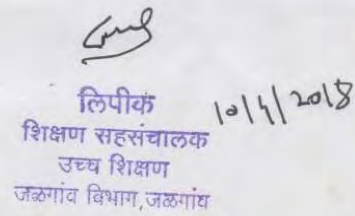 लिपीक
10/1/2018
शिक्षण सहसंचालक
उच्च शिक्षण
जळगांव विभाग, जळगांव